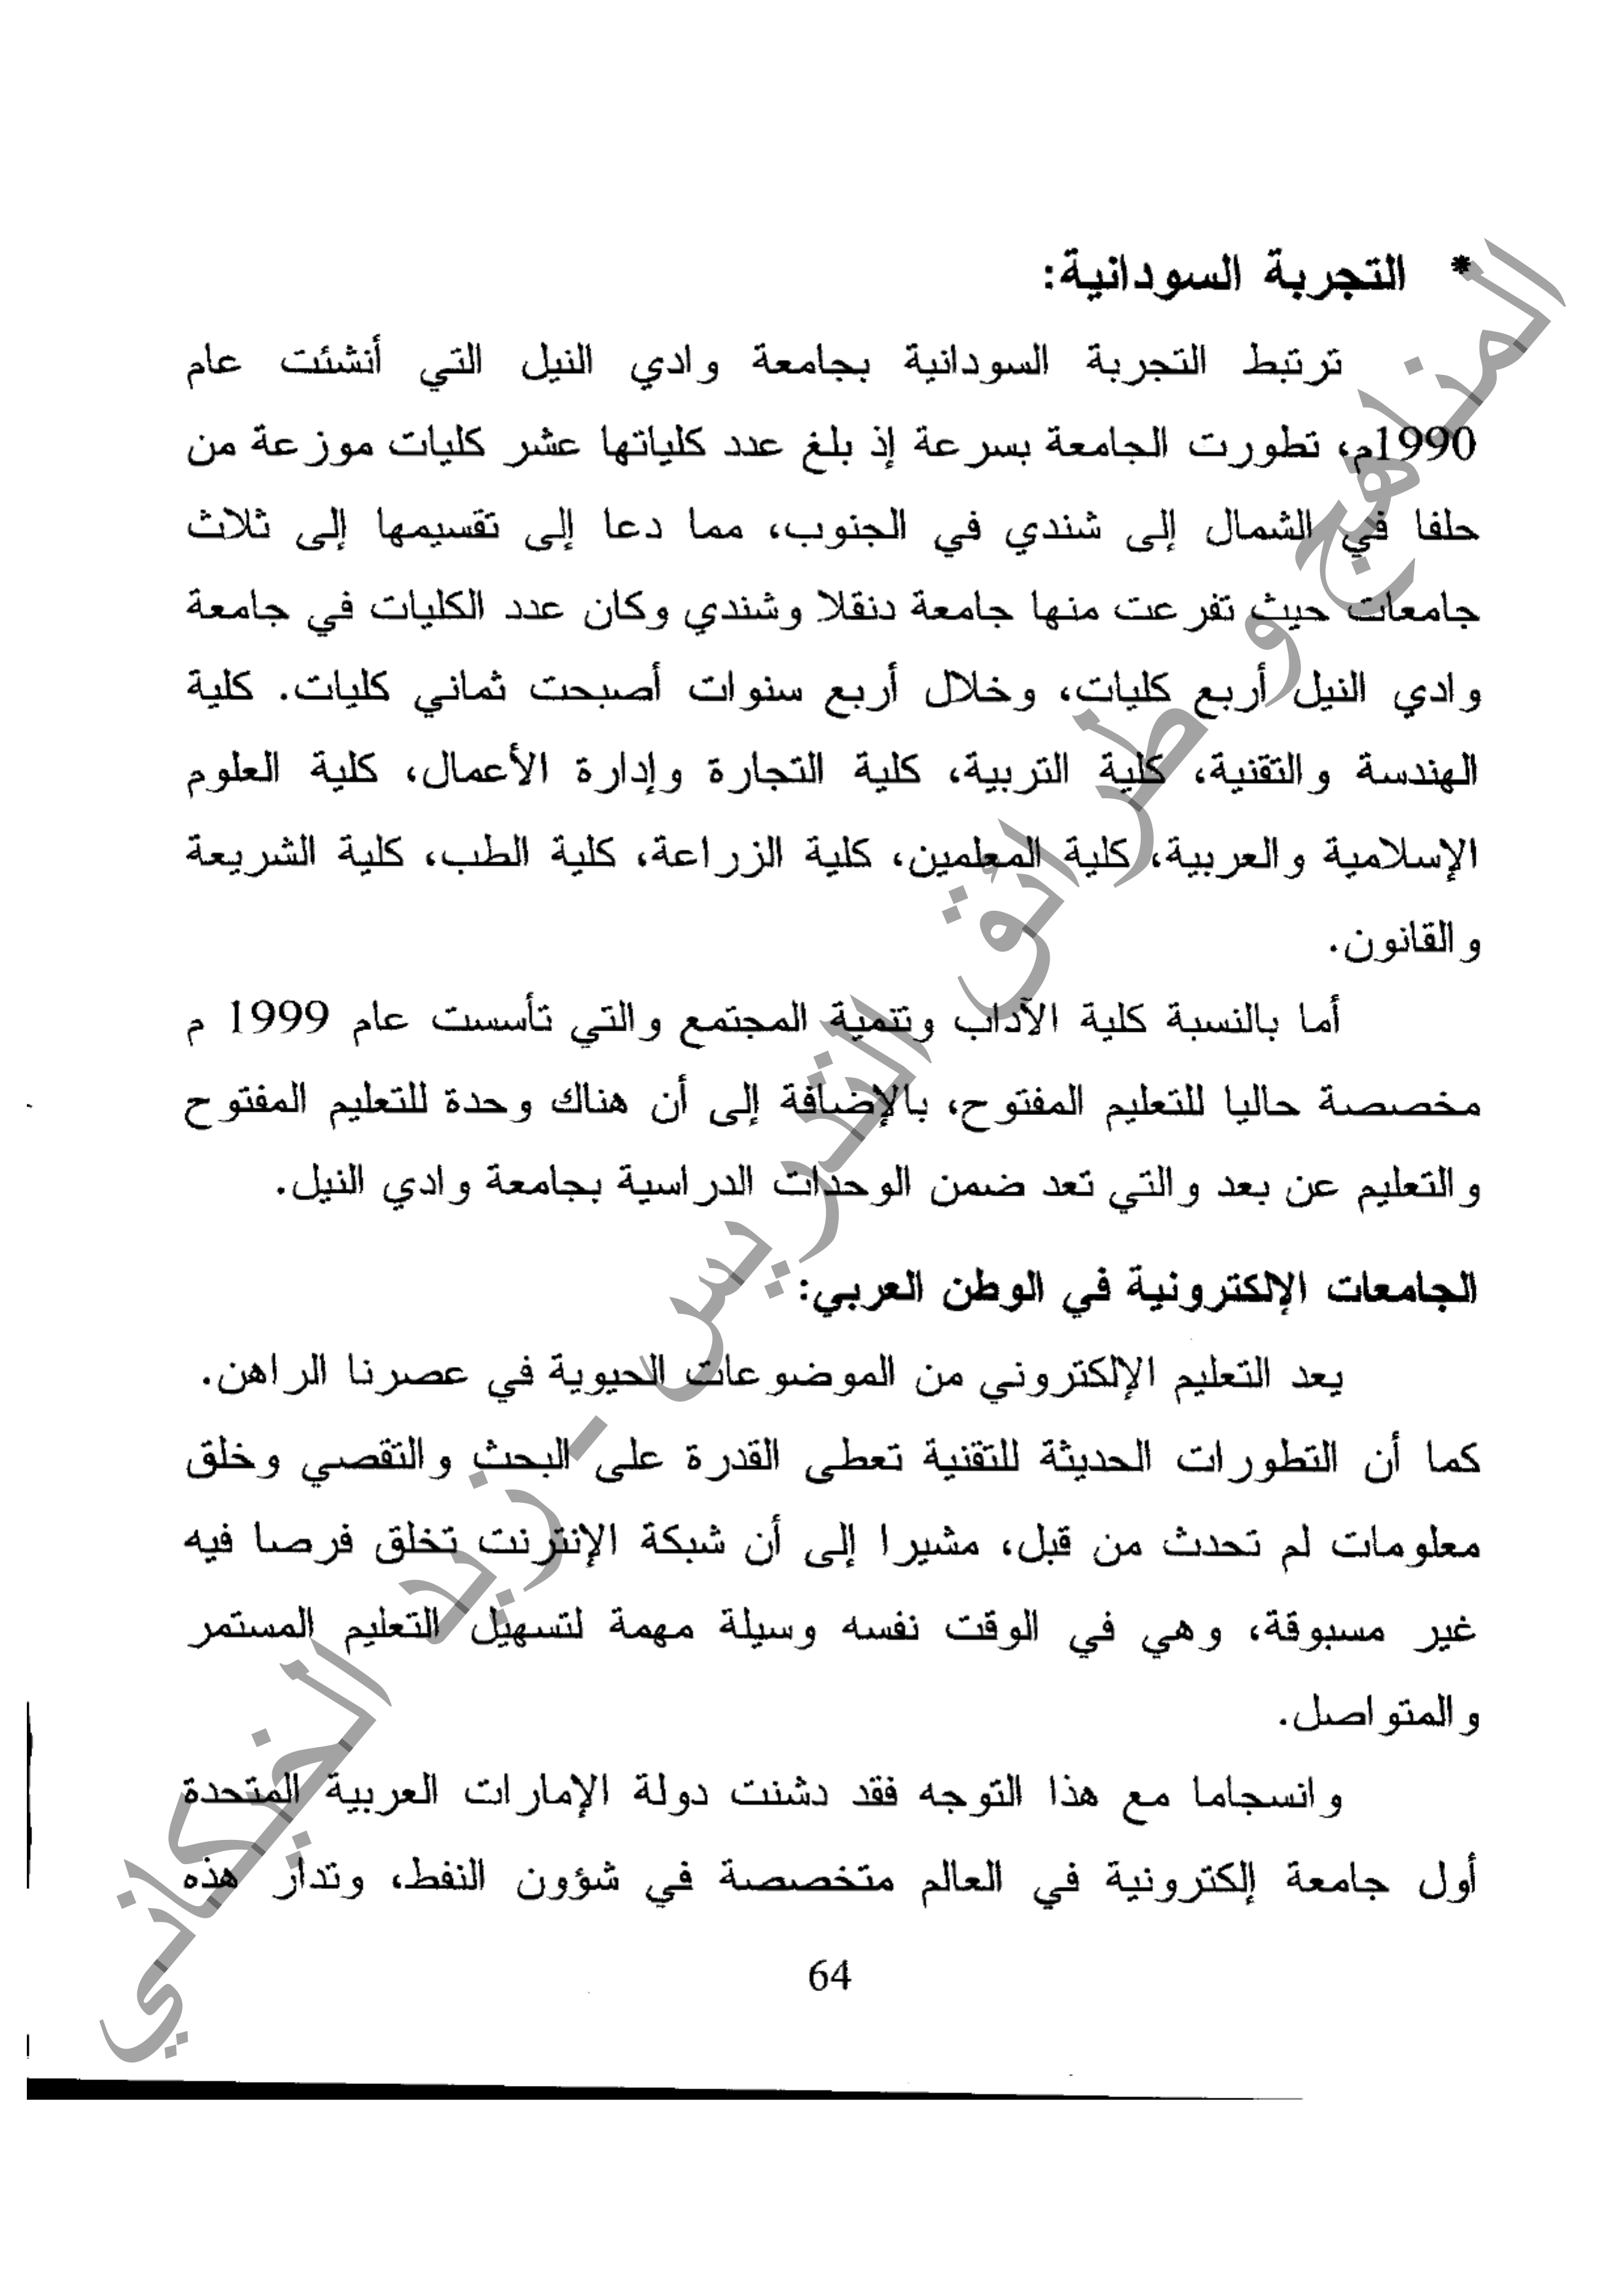 * التجربة السودانية:
ترتبط التجربة السودانية بجامعة وادي النيل التي أنشئت عام
1990م، تطورت الجامعة بسرعة إذ بلغ عدد كلياتها عشر كليات موزعة من
حلفا في الشمال إلى شندي في الجنوب، مما دعا إلى تقسيمها إلى ثلاث
جامعات حيث تفرعت منها جامعة دنقلا وشندي وكان عدد الكليات في جامعة
وادي النيل أربع كليات، وخلال أربع سنوات أصبحت ثماني كليات. كلية
الهندسة والتقنية، كلية التربية، كلية التجارة وإدارة الأعمال، كلية العلوم
الإسلامية والعربية، كلية المعلمين، كلية الزراعة، كلية الطب، كلية الشريعة
والقانون.
أما بالنسبة كلية الآداب وتنمية المجتمع والتي تأسست عام 1999 م
مخصصة حاليا للتعليم المفتوح، بالإضافة إلى أن هناك وحدة للتعليم المفتوح
والتعليم عن بعد والتي تعد ضمن الوحدات الدراسية بجامعة وادي النيل.
الجامعات الإلكترونية في الوطن العربي:
يعد التعليم الإلكتروني من الموضوعات الحيوية في عصرنا الراهن.
كما أن التطورات الحديثة للتقنية تعطى القدرة على البحث والتقصي وخلق
معلومات لم تحدث من قبل، مشيرا إلى أن شبكة الإنترنت تخلق فرصا فيه
غير مسبوقة، وهي في الوقت نفسه وسيلة مهمة لتسهيل التعليم المستمر
والمتواصل.
وانسجاما مع هذا التوجه فقد دشنت دولة الإمارات العربية المتحدة
أول جامعة إلكترونية في العالم متخصصة في شؤون النفط، وتدار هذه
64
المناهج و طرائق التدريس - زيد الخيكاني